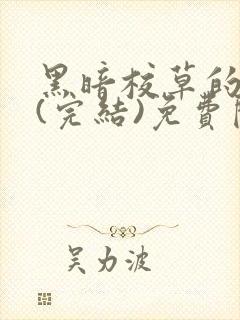 黑暗校草的
(完結)免費
吴力波